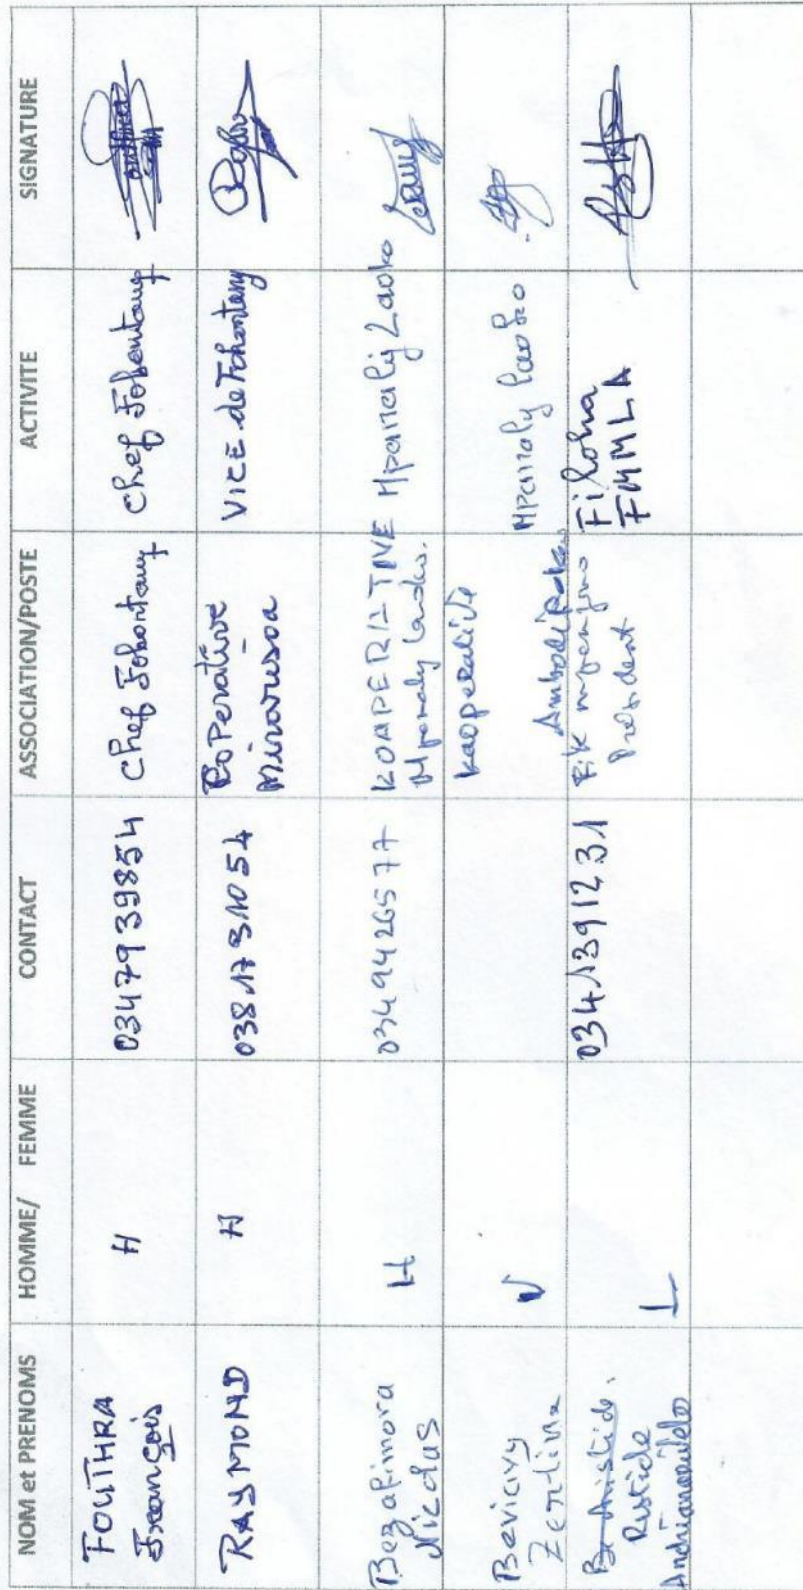 NOM et PRENOMS HOMME/ FEMME CONTACT ASSOCIATION/POSTE ACTIVITE SIGNATURE
FOUTHRA François H 0347939854 Chef Fokontany Chef Fokontany
RAYMOND H 0381731054 CoPerative Miraursoa VICE de Fokontany
Bezafimora Nicolas H 0349426577 KOMPERATIVE Mpanaly Laoko. Mpanaly Laoko
Bevievy Zerlina V kaoperative Mpanaly laoko
Be Aristide. Ristide L 0341391231 President Filoha FMMLA